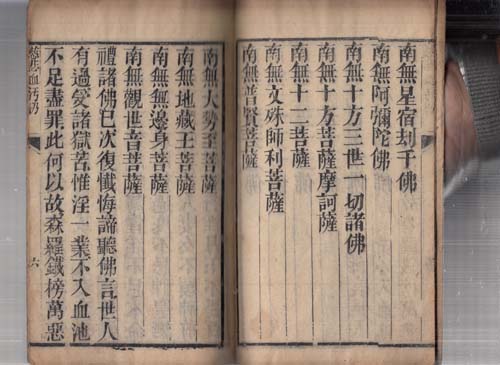 南無星宿刦千佛
南無阿彌陀佛
南無十方三世一切諸佛
南無十方菩薩摩訶薩
南無十二菩薩
南無文殊師利菩薩
南無普賢菩薩
南無大勢至菩薩
南無地藏王菩薩
南無無邊身菩薩
南無觀世音菩薩
禮諸佛已次復懺悔諦聽佛言世人
有過受諸獄苦惟淫一業不入血池
不足盡罪此何以故森羅鐵榜萬惡
六